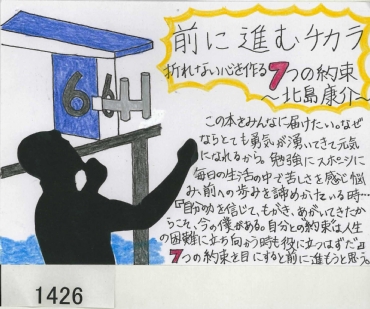 前に進むチカラ
折れない心を作る7つの約束
～北島康介～
6
この本をみんなに届けたい。なぜ
ならとても勇気が湧いてきて元気
になれるから。勉強にスポーツに
毎日の生活の中で苦しさを感じ悩
み、前への歩みを諦めかたいる時…
『自分の力を信じて、もがき、あがいてきたか
らこそ、今の僕がある。自分との約束は人生
の困難に立ち向かう時も役に立つはずだ』
7つの約束を目にすると前に進もうと思う。
1426